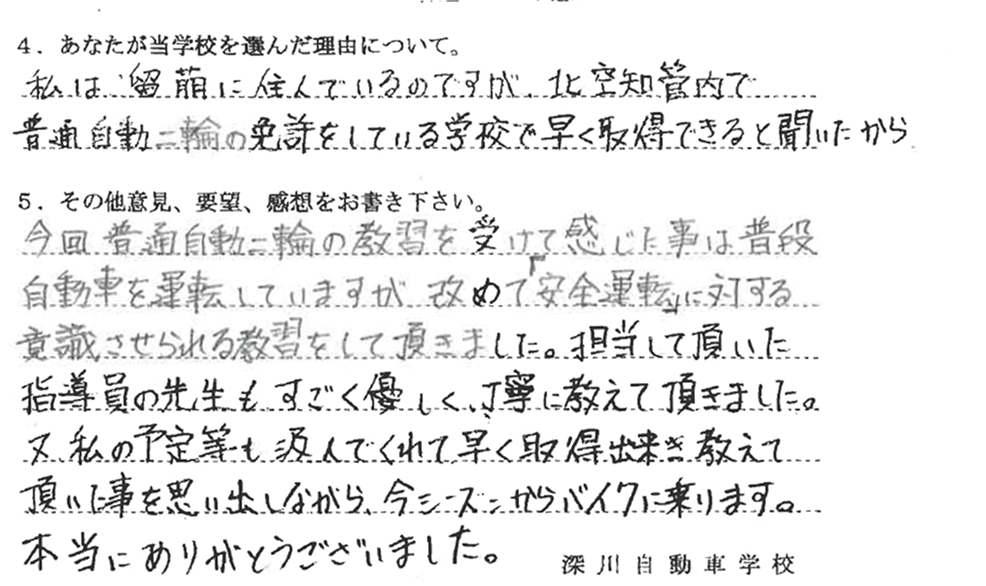 4．あなたが当学校を選んだ理由について。
私は、留萌に住んでいるのですが、北空知管内で
普通自動二輪の免許をしている学校で早く取得できると聞いたから
5．その他意見、要望、感想をお書き下さい。
今回、普通自動二輪の教習を受けて感じた事は普段
自動車を運転していますが、改めて「安全運転」に対する
意識させられる教習をして頂きました。担当して頂いた
指導員の先生も、すごく優しく、丁寧に教えて頂きました。
又、私の予定等も汲んでくれて、早く取得出来き教えて
頂いた事を思い出しながら、今シーズンからバイクに乗ります。
本当にありがとうございました。
深川自動車学校